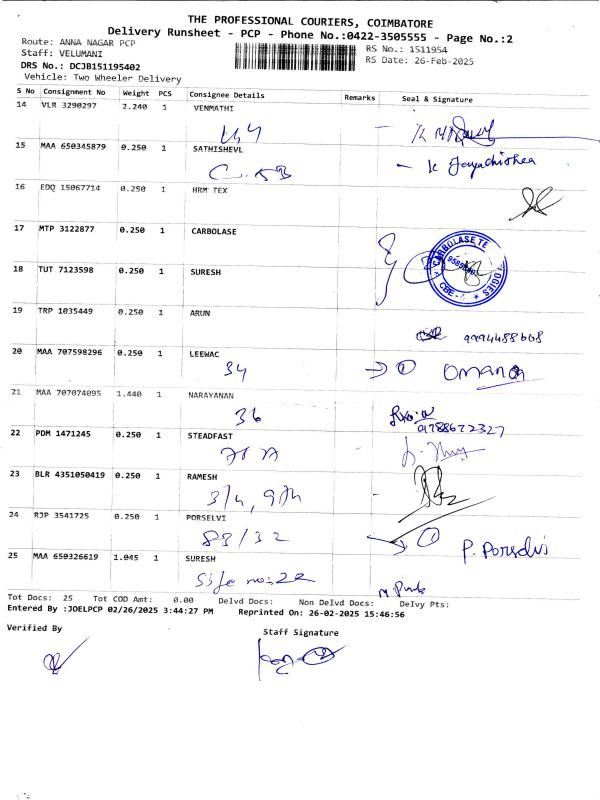 THE PROFESSIONAL COURIERS, COIMBATORE
Delivery Runsheet - PCP - Phone No.:0422-3505555 - Page No.:2
Route: ANNA NAGAR PCP
RS No.: 1511954
Staff: VELUMANI
RS Date: 26-Feb-2025
DRS No.: DCJB151195402
Vehicle: Two Wheeler Delivery
S No Consignment No Weight PCS Consignee Details Remarks Seal & Signature
14 VLR 3290297 2.240 1 VENMATHI
15 MAA 650345879 0.250 1 SATHISHEVL
16 EDQ 15067714 0.250 1 HRM TEX
17 MTP 3122877 0.250 1 CARBOLASE
CARBOLASE TE
CBE
18 TUT 7123598 0.250 1 SURESH
19 TRP 1035449 0.250 1 ARUN
9994488668
20 MAA 707598296 0.250 1 LEEWAC
34
21 MAA 707074095 1.440 1 NARAYANAN
36
9788672327
22 PDM 1471245 0.250 1 STEADFAST
23 BLR 4351050419 0.250 1 RAMESH
3/4, 9th
24 RJP 3541725 0.250 1 PORSELVI
88/32
P. Porselvi
25 MAA 650326619 1.045 1 SURESH
Site no: 22
Tot Docs: 25 Tot COD Amt: 0.00 Delvd Docs: Non Delvd Docs: Delvy Pts:
Entered By :JOELPCP 02/26/2025 3:44:27 PM Reprinted On: 26-02-2025 15:46:56
Verified By
Staff Signature